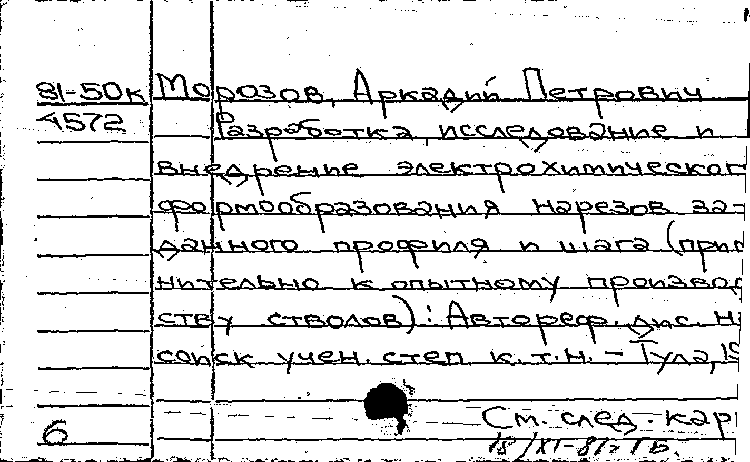 81-50к Морозов, Аркадий Петрович
4572 Разработка, исследование и
внедрение электрохимическог
формообразования нарезов за-
данного профиля и шага (прим
нительно к опытному производ
ству стволов): Автореф. дис. н
соиск учен. степ к.т.н. - Тула, 19
См. след. кар
6 18/XI-81г